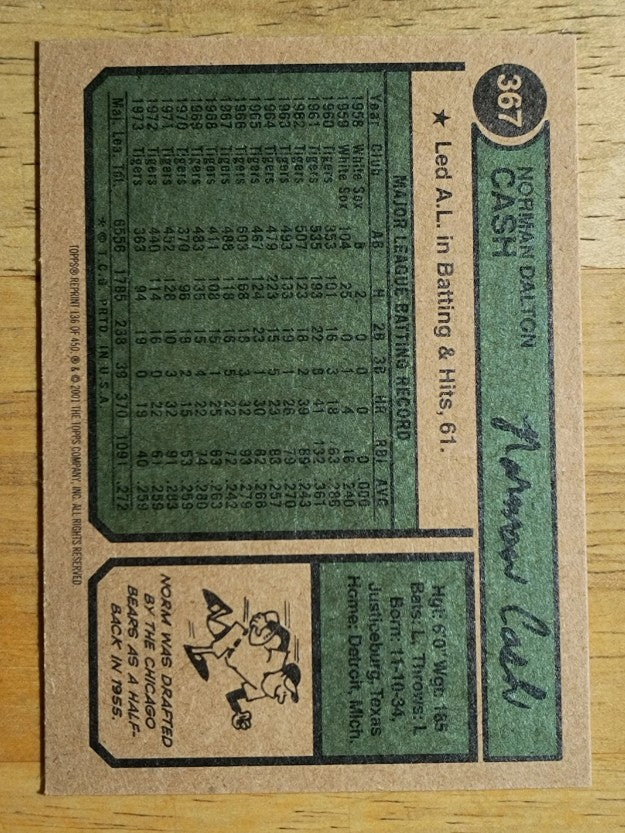 367
NORMAN DALTON
CASH
Norman Cash
★ Led A.L. in Batting & Hits, 61.
MAJOR LEAGUE BATTING RECORD
Year Club AB H 2B 3B HR RBI AVG
1958 White Sox 8 2 0 0 0 0
1959 White Sox 104 25 0 1 4 16 .240
1960 Tigers 353 101 16 3 18 63 .286
1961 Tigers 535 193 22 8 41 132 .361
1962 Tigers 507 123 16 2 39 89 .243
1963 Tigers 493 133 19 1 26 79 .270
1964 Tigers 479 123 15 5 23 83 .257
1965 Tigers 467 124 23 1 30 82 .266
1966 Tigers 603 168 18 3 32 93 .279
1967 Tigers 488 118 16 5 22 72 .242
1968 Tigers 411 108 15 1 25 63 .263
1969 Tigers 483 135 15 4 22 74 .280
1970 Tigers 370 96 18 2 15 53 .259
1971 Tigers 452 128 10 3 32 91 .283
1972 Tigers 440 114 16 0 22 61 .259
1973 Tigers 363 94 19 0 19 40 .259
Maj. Lea. Tot. 6556 1785 238 39 370 1091 .272
* © T.C.G. PRTD. IN U.S.A.
TOPPS® REPRINT 136 OF 450. ® & © 2001 THE TOPPS COMPANY, INC. ALL RIGHTS RESERVED.
Hgt: 6'0" Wgt: 185
Bats: L Throws: L
Born: 11-10-34,
Justiceburg, Texas
Home: Detroit, Mich.
NORM WAS DRAFTED
BY THE CHICAGO
BEARS AS A HALF-
BACK IN 1955.